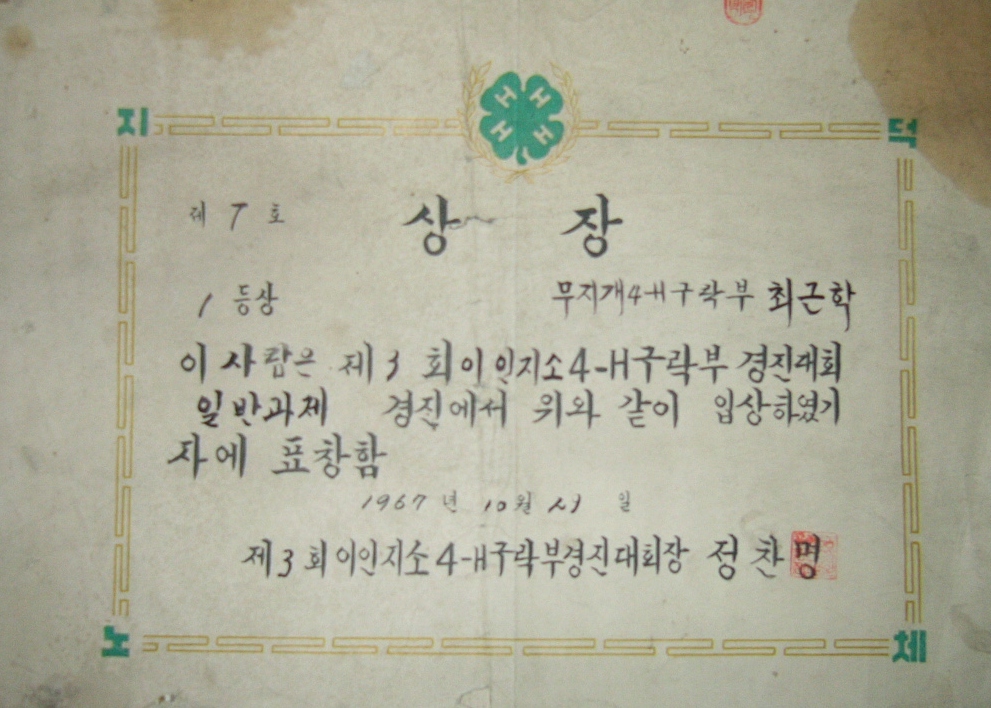 지 덕
H H H H
제 7 호 상 장
1 등상 무지개4-H구락부 최근학
이 사람은 제3회이인지소4-H구락부경진대회
일반과제 경진에서 위와 같이 입상하였기
자에 표창함
1967년 10월 일
제3회이인지소4-H구락부경진대회장 정찬명
노 체